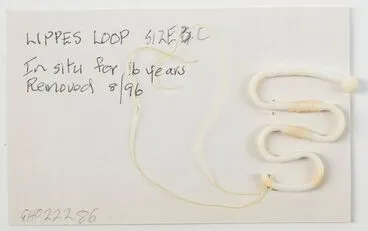 LIPPES LOOP SIZE C
In situ for 16 years
Removed 8/96
GH022286